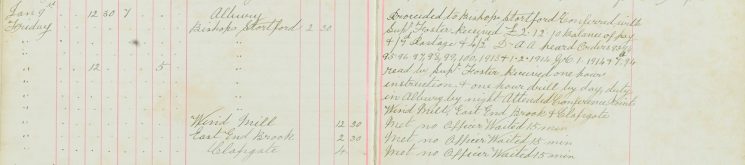 Jan 9th 12 30 7 Albury Proceeded to Bishops Stortford Conferred with
Friday Bishops Stortford 2 30 Supt Foster Received £2-12 10 Balance of pay
" " & 1/9 Postage & 4/2 D-A A heard Orders
" " 95-96 97, 98, 99, 100, 1913 & 1-2-1914 1914
" 12 5 " read by Supt Foster Received one hour
" " instruction & one hour drill by day, duty
" " in Albury by night Attended Conference Points
" " Wind Mill, East End Brook & Clapgate
" Wind Mill 12 30 Met no Officer Waited 15 min
" East End Brook 2 30 Met no Officer Waited 15 min
" Clapgate 4 Met no Officer Waited 15 min